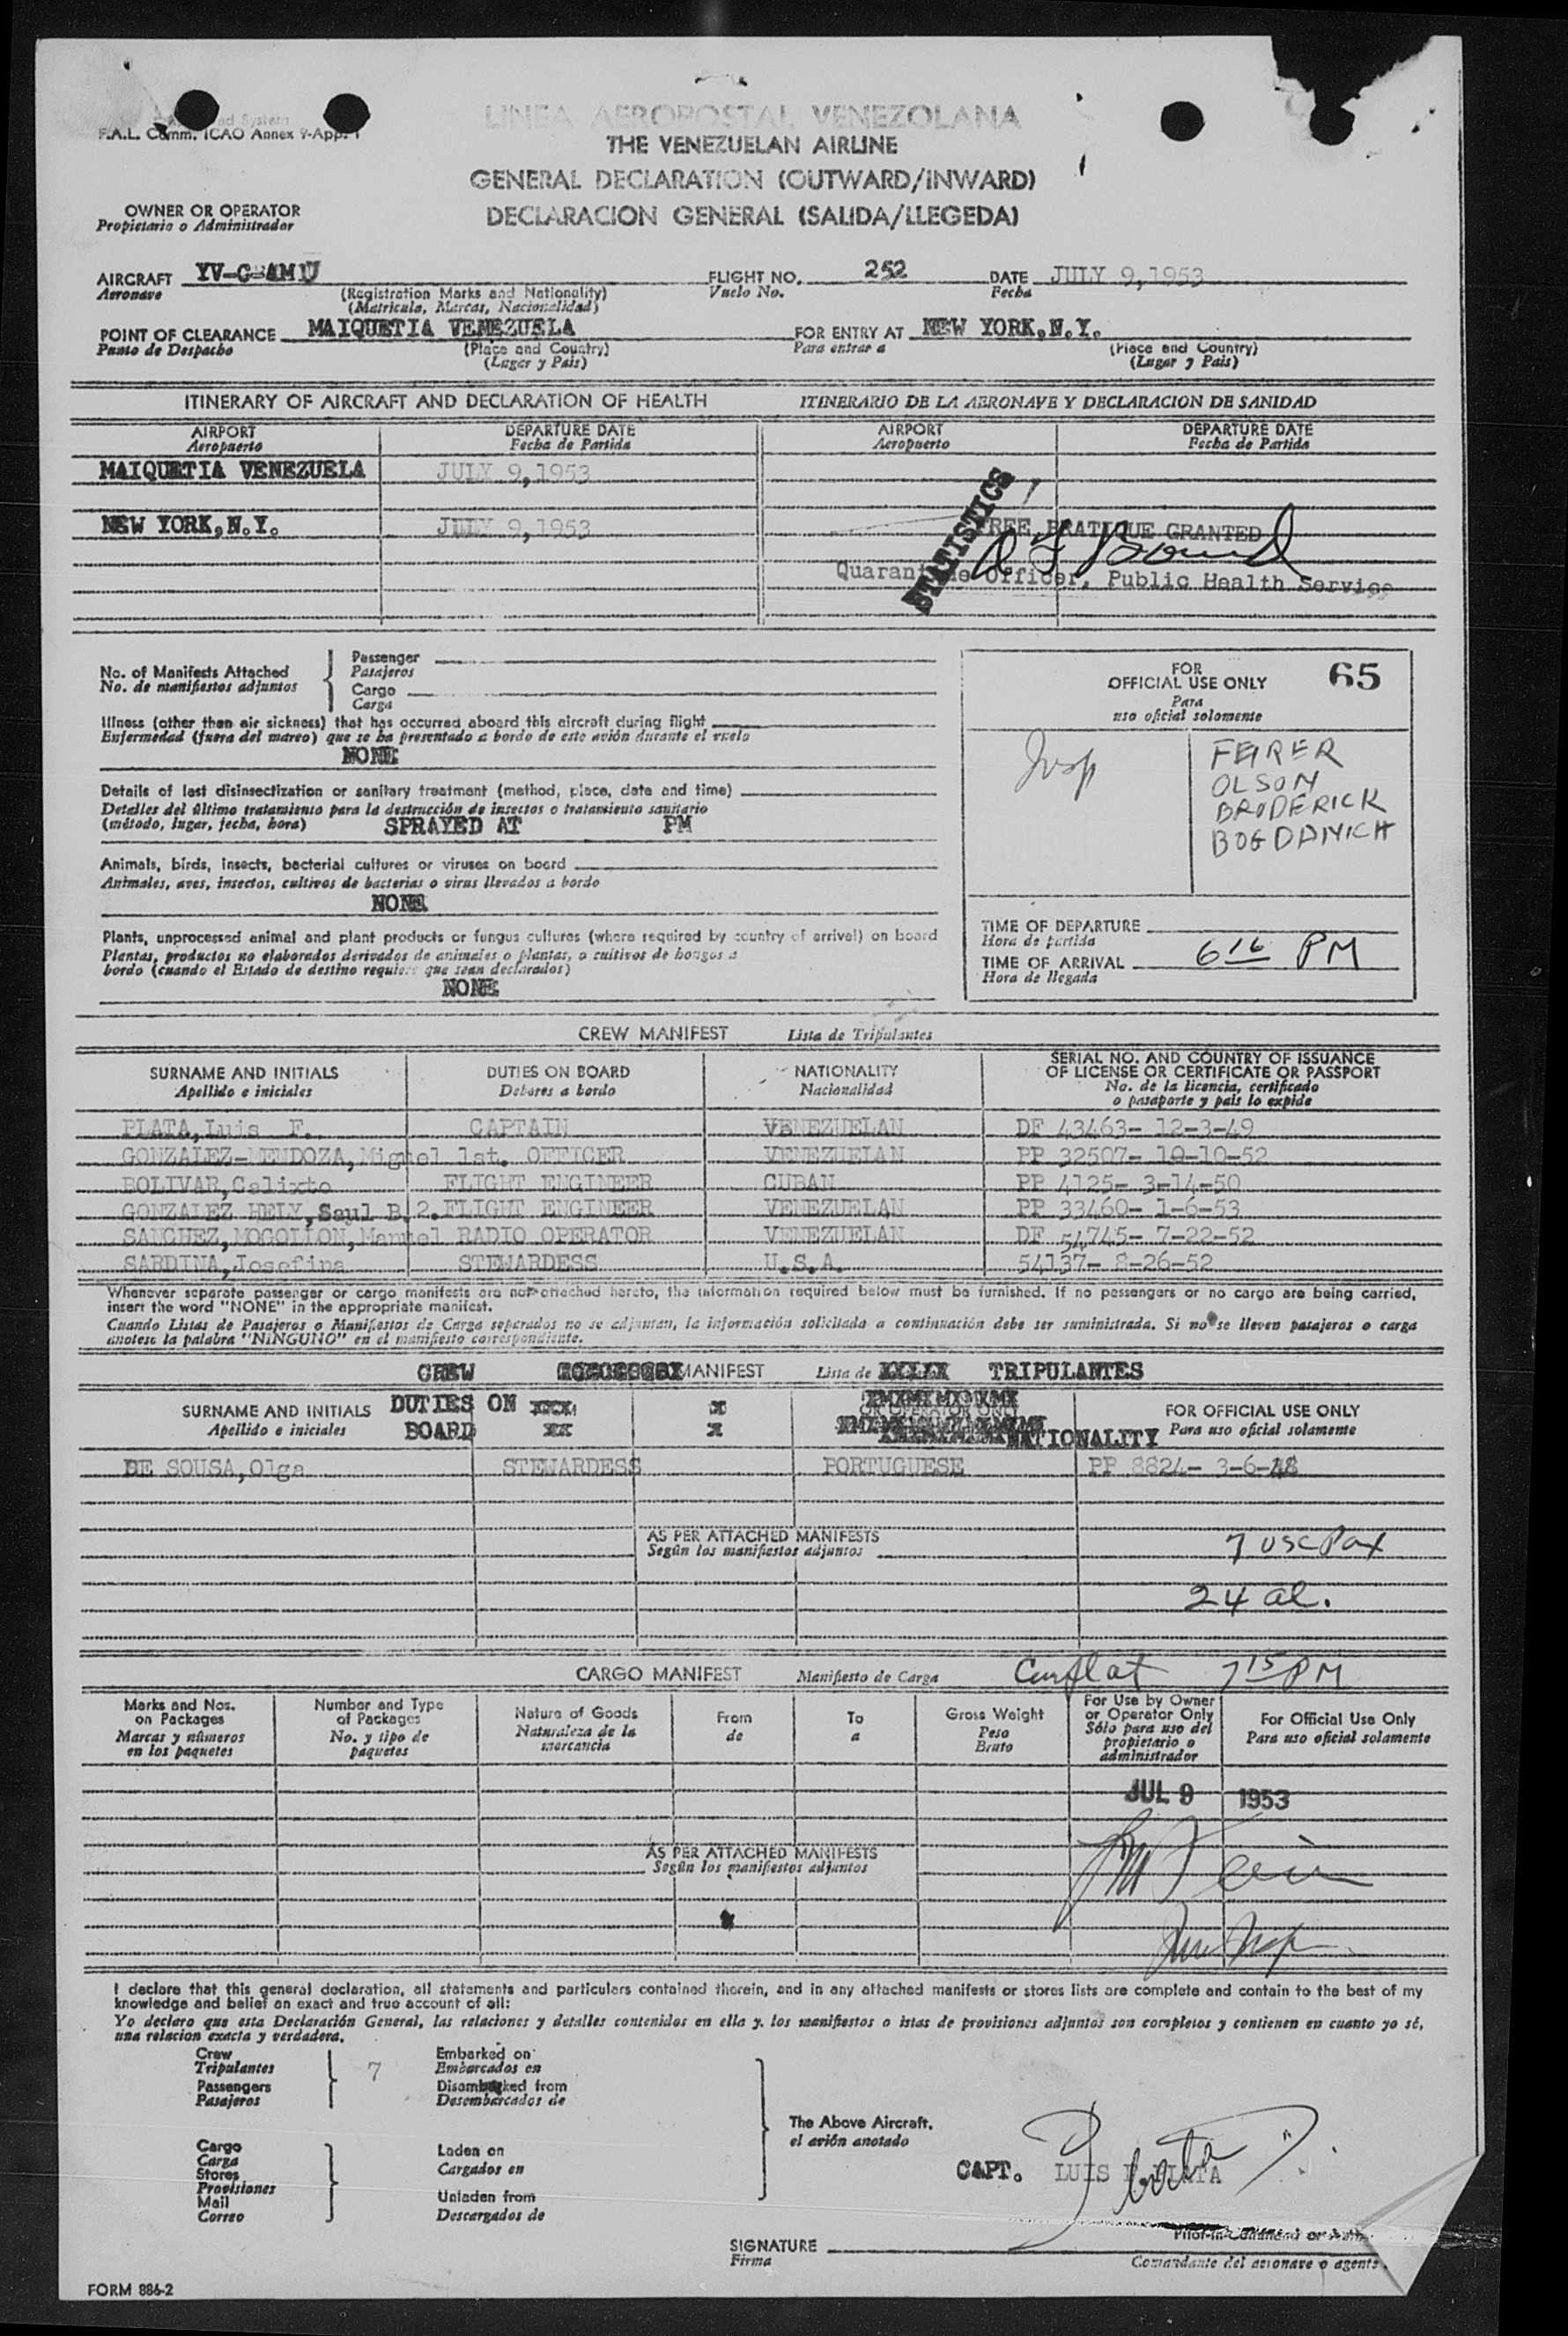 F.A.L. Comm. ICAO Annex 9-App. 1
LINEA AEROPOSTAL VENEZOLANA
THE VENEZUELAN AIRLINE
GENERAL DECLARATION (OUTWARD/INWARD)
DECLARACION GENERAL (SALIDA/LLEGEDA)
OWNER OR OPERATOR
Propietario o Administrador
AIRCRAFT YV-C-AMU FLIGHT NO. 252 DATE JULY 9,1953
Aeronave (Registration Marks and Nationality) Vuelo No. Fecha
(Matricula, Marcas, Nacionalidad)
POINT OF CLEARANCE MAIQUETIA VENEZUELA FOR ENTRY AT NEW YORK,N.Y.
Punto de Despacho (Place and Country) Para entrar a (Place and Country)
(Lugar y Pais) (Lugar y Pais)
ITINERARY OF AIRCRAFT AND DECLARATION OF HEALTH ITINERARIO DE LA AERONAVE Y DECLARACION DE SANIDAD
AIRPORT DEPARTURE DATE AIRPORT DEPARTURE DATE
Aeropuerto Fecha de Partida Aeropuerto Fecha de Partida
MAIQUETIA VENEZUELA JULY 9,1953
STATISTICS
NEW YORK,N.Y. JULY 9,1953 FREE PRATIQUE GRANTED
Quarantine Officer, Public Health Service
No. of Manifests Attached Passenger
No. de manifiestos adjuntos Pasajeros
Cargo
Carga
FOR 65
OFFICIAL USE ONLY
Para
uso oficial solomente
Insp FEIRER
OLSON
BRODERICK
BOGDANICH
Illness (other than air sickness) that has occurred aboard this aircraft during flight
Enfermedad (fuera del mareo) que se ha presentado a bordo de este avión durante el vuelo
NONE
Details of last disinsectization or sanitary treatment (method, place, date and time)
Detalles del último tratamiento para la destrucción de insectos o tratamiento sanitario
(método, lugar, fecha, hora) SPRAYED AT PM
Animals, birds, insects, bacterial cultures or viruses on board
Animales, aves, insectos, cultivos de bacterias o virus llevados a bordo
NONE
Plants, unprocessed animal and plant products or fungus cultures (where required by country of arrival) on board
Plantas, productos no elaborados derivados de animales o plantas, o cultivos de hongos a
bordo (cuando el Estado de destino requiere que sean declarados)
NONE
TIME OF DEPARTURE
Hora de partida
TIME OF ARRIVAL 6 16 PM
Hora de llegada
CREW MANIFEST Lista de Tripulantes
SURNAME AND INITIALS DUTIES ON BOARD NATIONALITY SERIAL NO. AND COUNTRY OF ISSUANCE
OF LICENSE OR CERTIFICATE OR PASSPORT
Apellido e iniciales Deberes a bordo Nacionalidad No. de la licencia, certificado
o pasaporte y pais lo expide
PLATA,Luis F. CAPTAIN VENEZUELAN DF 43463- 12-3-49
GONZALEZ-MENDOZA,Miguel 1st. OFFICER VENEZUELAN PP 32507- 10-10-52
BOLIVAR,Calixto FLIGHT ENGINEER CUBAN PP 4125- 3-14-50
GONZALEZ HELY,Saul B. 2.FLIGHT ENGINEER VENEZUELAN PP 33460- 1-6-53
SANCHEZ,MOGOLLON,Manuel RADIO OPERATOR VENEZUELAN DF 54745- 7-22-52
SARDINA,Josefina STEWARDESS U.S.A. 54137- 8-26-52
Whenever separate passenger or cargo manifests are not attached hereto, the information required below must be furnished. If no passengers or no cargo are being carried,
insert the word "NONE" in the appropriate manifest.
Cuando Listas de Pasajeros o Manifiestos de Carga separados no se adjuntan, la información solicitada a continuación debe ser suministrada. Si no se lleven pasajeros o carga
anotese la palabra "NINGUNO" en el manifiesto correspondiente.
CREW MANIFEST Lista de TRIPULANTES
SURNAME AND INITIALS DUTIES ON OR OPERATOR ONLY FOR OFFICIAL USE ONLY
Apellido e iniciales BOARD NATIONALITY Para uso oficial solamente
DE SOUSA,Olga STEWARDESS PORTUGUESE PP 8824- 3-6-48
AS PER ATTACHED MANIFESTS 7 USC Pax
Según los manifiestos adjuntos
24 al.
CARGO MANIFEST Manifiesto de Carga 7 15 PM
Marks and Nos. on Packages Number and Type of Packages Nature of Goods From To Gross Weight For Use by Owner or Operator Only For Official Use Only
Marcas y números en los paquetes No. y tipo de paquetes Naturaleza de la mercancia de a Peso Bruto Sólo para uso del propietario o administrador Para uso oficial solamente
JUL 9 1953
AS PER ATTACHED MANIFESTS
Según los manifiestos adjuntos
I declare that this general declaration, all statements and particulars contained therein, and in any attached manifests or stores lists are complete and contain to the best of my
knowledge and belief an exact and true account of all:
Yo declaro que esta Declaración General, las relaciones y detalles contenidos en ella y. los manifiestos o istas de provisiones adjuntos son completos y contienen en cuanto yo sé,
una relacion exacta y verdadera.
Crew 7 Embarked on
Tripulantes Embarcados en
Passengers Disembarked from
Pasajeros Desembarcados de
The Above Aircraft.
el avión anotado
Cargo Laden on
Carga Cargados en
Stores
Provisiones
Mail Unladen from
Correo Descargados de
CAPT. LUIS F. PLATA
Pilot-in-Command or
SIGNATURE
Firma Comandante del aeronave o agente
FORM 886-2